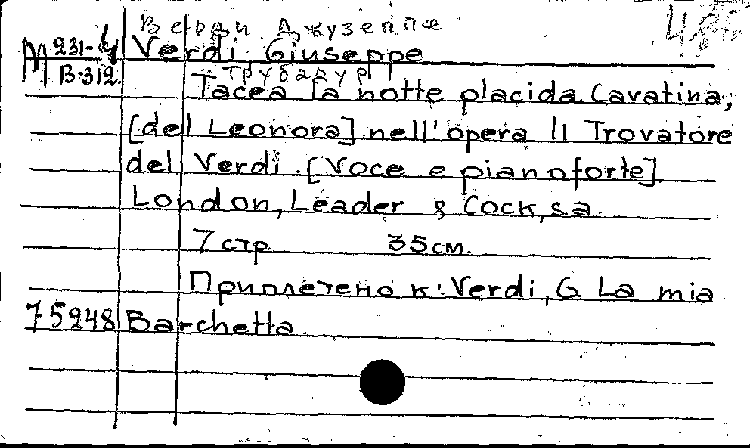 Верди Джузеппе 486
М 231-4 Verdi Giuseppe
В.312 Трубадур
Tacea la notte placida. Cavatina,
[del Leonora] nell'opera Il Trovatore
del Verdi. [Voce e pianoforte]
London, Leader & Cock, sa
7 стр 35см.
Приплетено к: Verdi, G La mia
75248 Barchetta